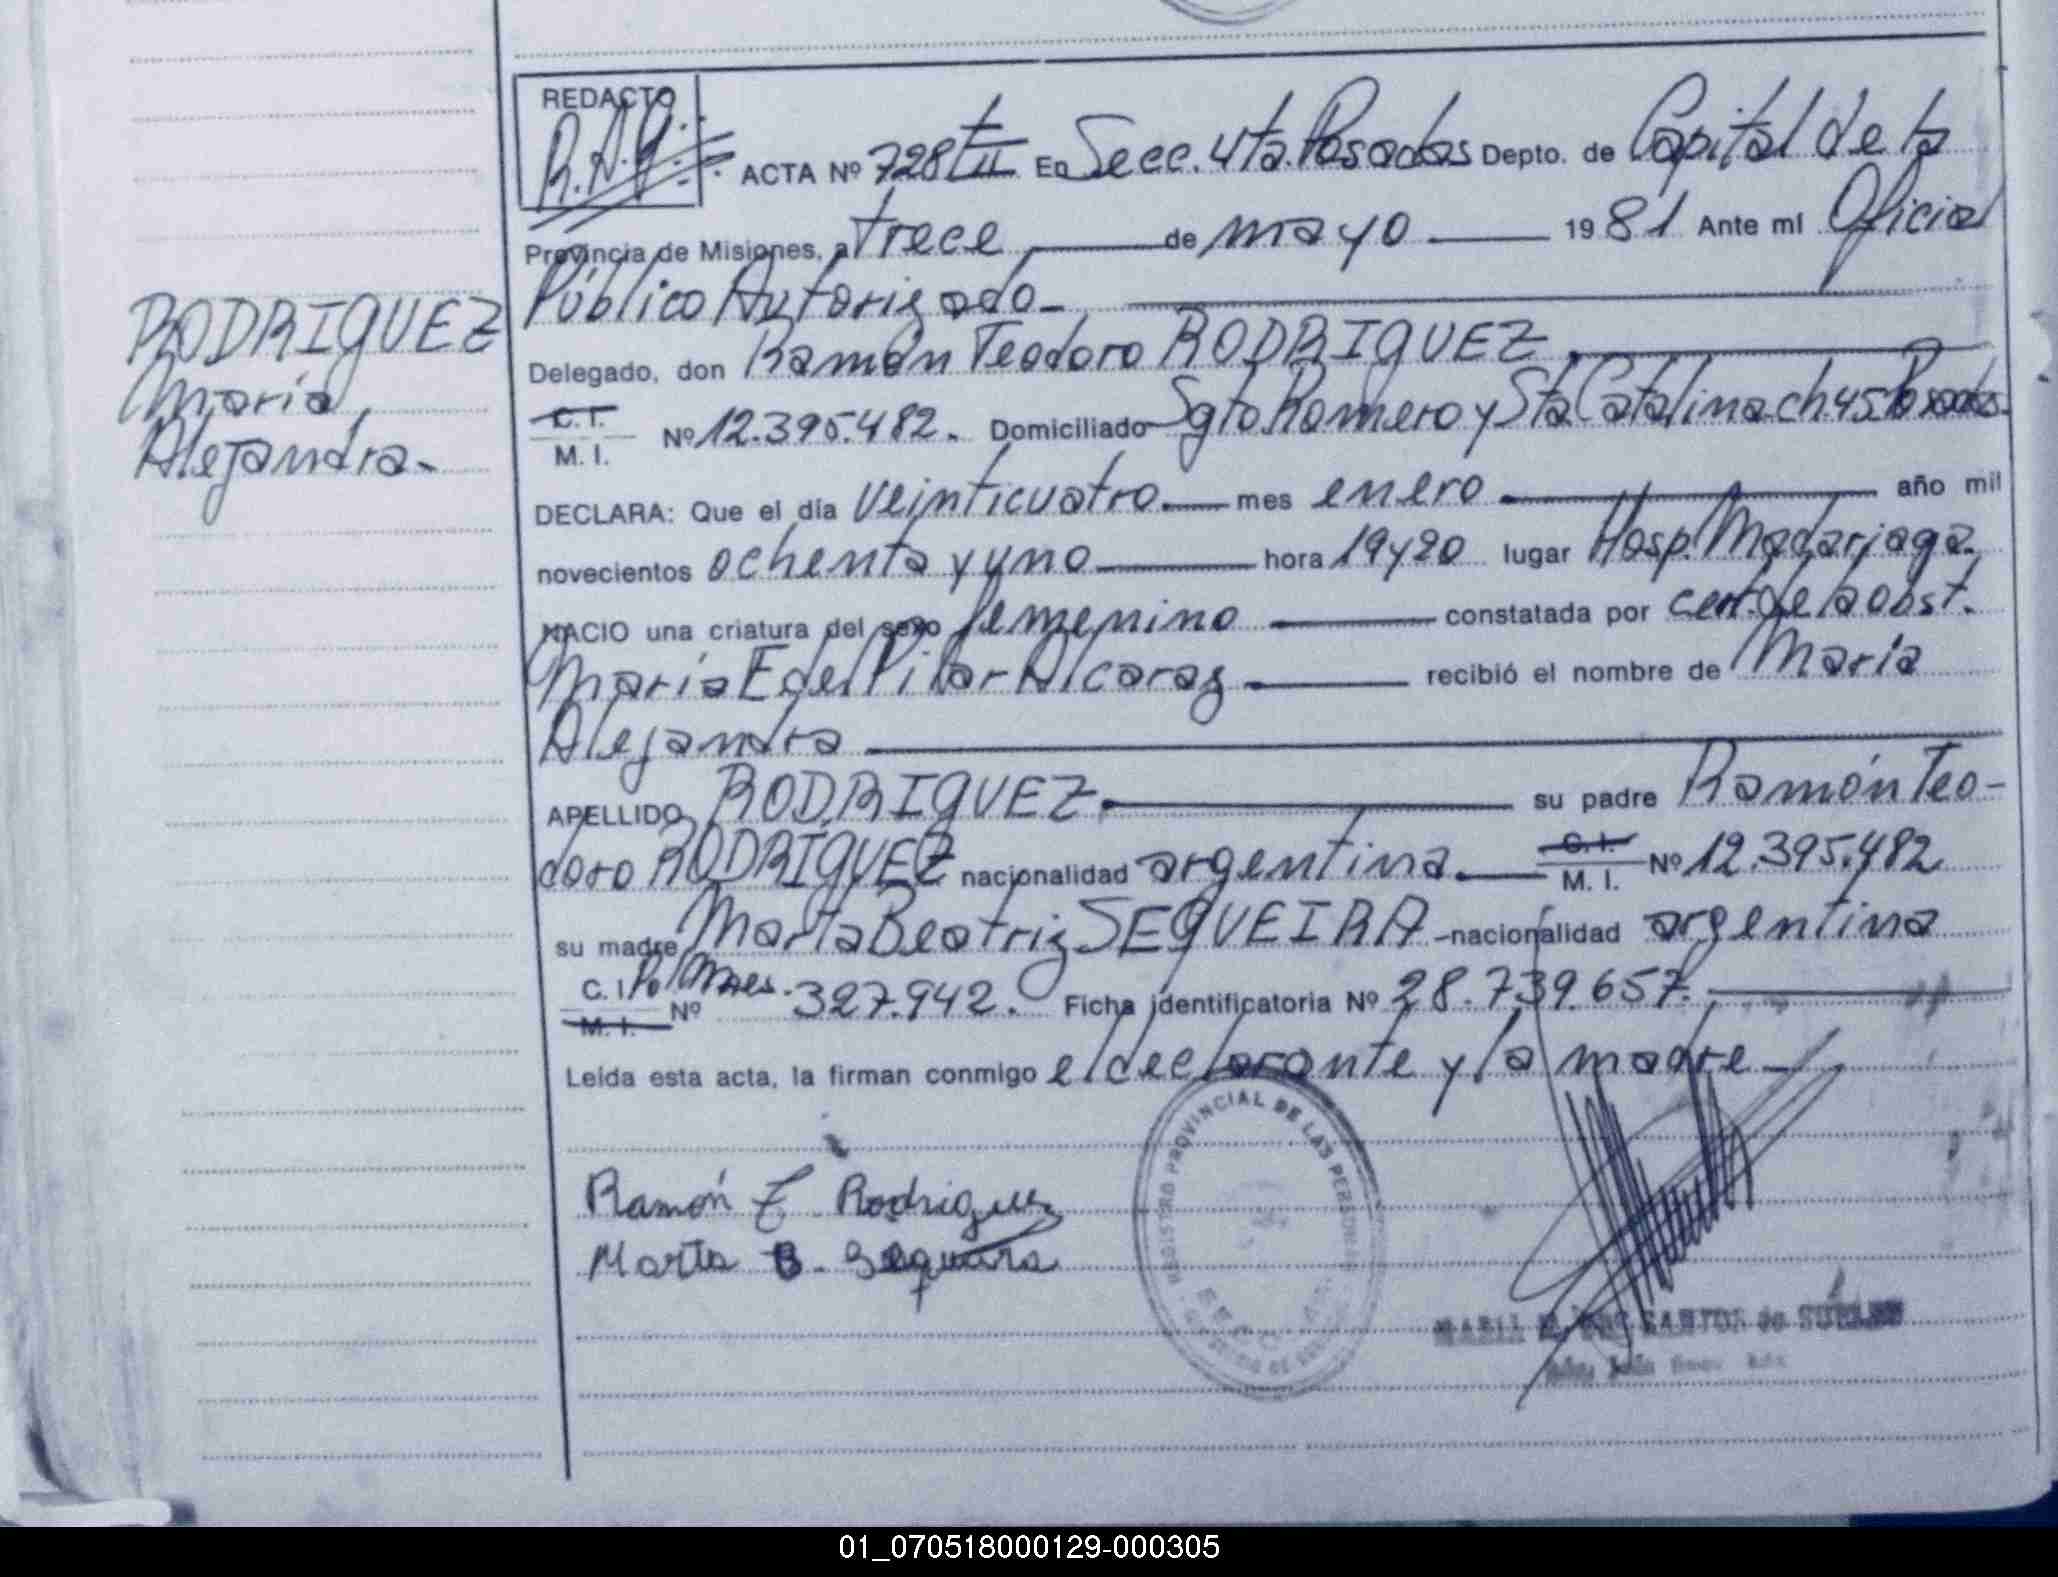 REDACTO
R.A.G.
ACTA Nº 728 T II En Secc. 4ta. Posadas Depto. de Capital de la
Provincia de Misiones, a trece de mayo 1981 Ante mí Oficial
Público Autorizado-
Delegado, don Ramón Teodoro RODRIGUEZ.
C. I.
M. I. Nº 12.395.482. Domiciliado Sgto Romero y Sta Catalina ch. 45 Posadas.
DECLARA: Que el día veinticuatro. mes enero año mil
novecientos ochenta y uno hora 19 y 20 lugar Hosp. Madariaga.
NACIO una criatura del sexo femenino constatada por cert. de la obst.
María E del Pilar Alcaraz recibió el nombre de María
Alejandra
APELLIDO RODRIGUEZ. su padre Ramón Teo-
doro RODRÍGUEZ nacionalidad argentina. C. I.
M. I. Nº 12.395.482
su madre Marta Beatriz SEQUEIRA - nacionalidad argentina
C. I. Pol Mnes.
M. I. Nº 327.942. Ficha identificatoria Nº 28.739.657.
Leída esta acta, la firman conmigo el declarante y la madre-
RODRIGUEZ
María
Alejandra-
Ramón T. Rodriguez
Marta B. Sequeira
REGISTRO PROVINCIAL DE LAS PERSONAS
DOS SANTOS de
01_070518000129-000305